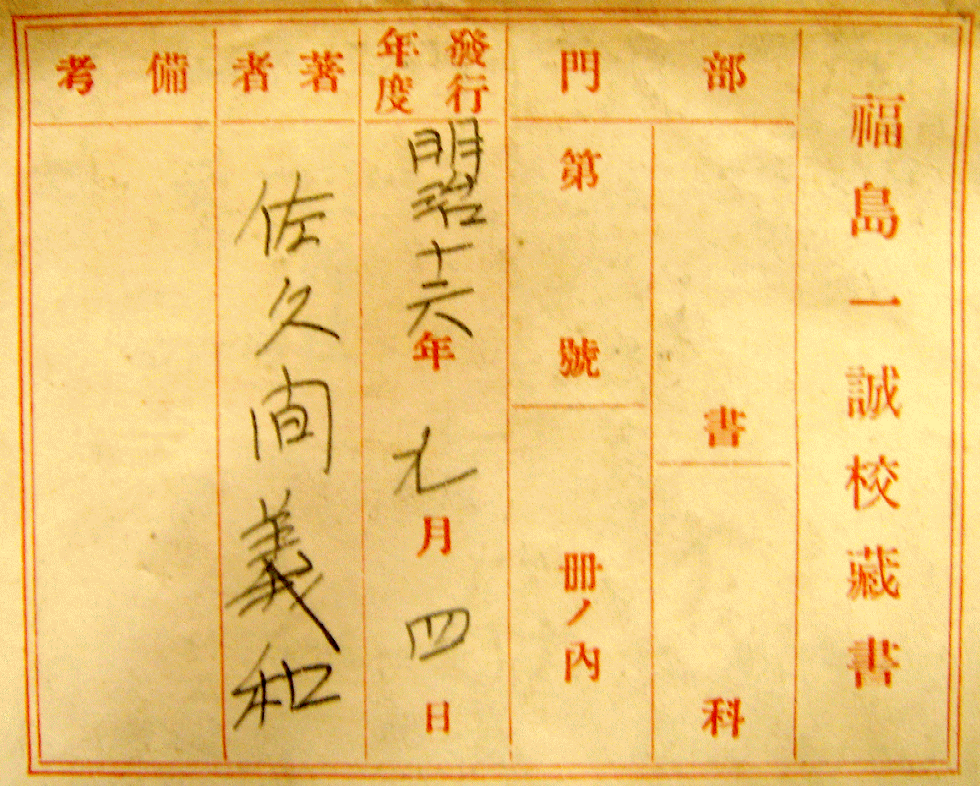 福島一誠校藏書
部門
書科
第號
冊ノ內
發行年度
明治十六年九月四日
著者
佐久間義和
備考